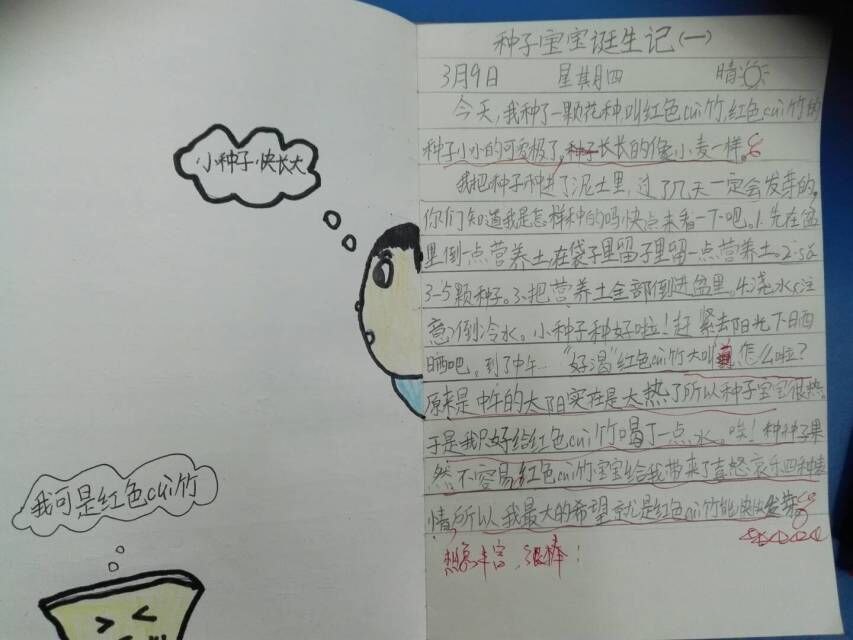 小种子快长大
我可是红色cui竹
种子宝宝诞生记(一)
3月9日 星期四 晴
今天,我种了一颗花种叫红色cui竹,红色cui竹的
种子小小的可爱极了,种子长长的像小麦一样。
我把种子种进了泥土里,过了几天一定会发芽的。
你们知道我是怎样种的吗快点来看一下吧。1.先在盆
里倒一点营养土,在袋子里留子里留一点营养土。2.
3-5颗种子。3.把营养土全部倒进盆里。4.浇水5.注
意倒冷水。小种子种好啦!赶紧去阳光下晒
晒吧。到了中午…"好渴"红色cui竹大叫 怎么啦?
原来是中午的太阳实在是太热了所以种子宝宝很热。
于是我只好给红色cui竹喝了一点水。唉!种种子果
然不容易红色cui竹宝宝给我带来了喜怒哀乐四种情
情,所以我最大的希望就是红色cui竹能快快发芽。
想象丰富,很棒!